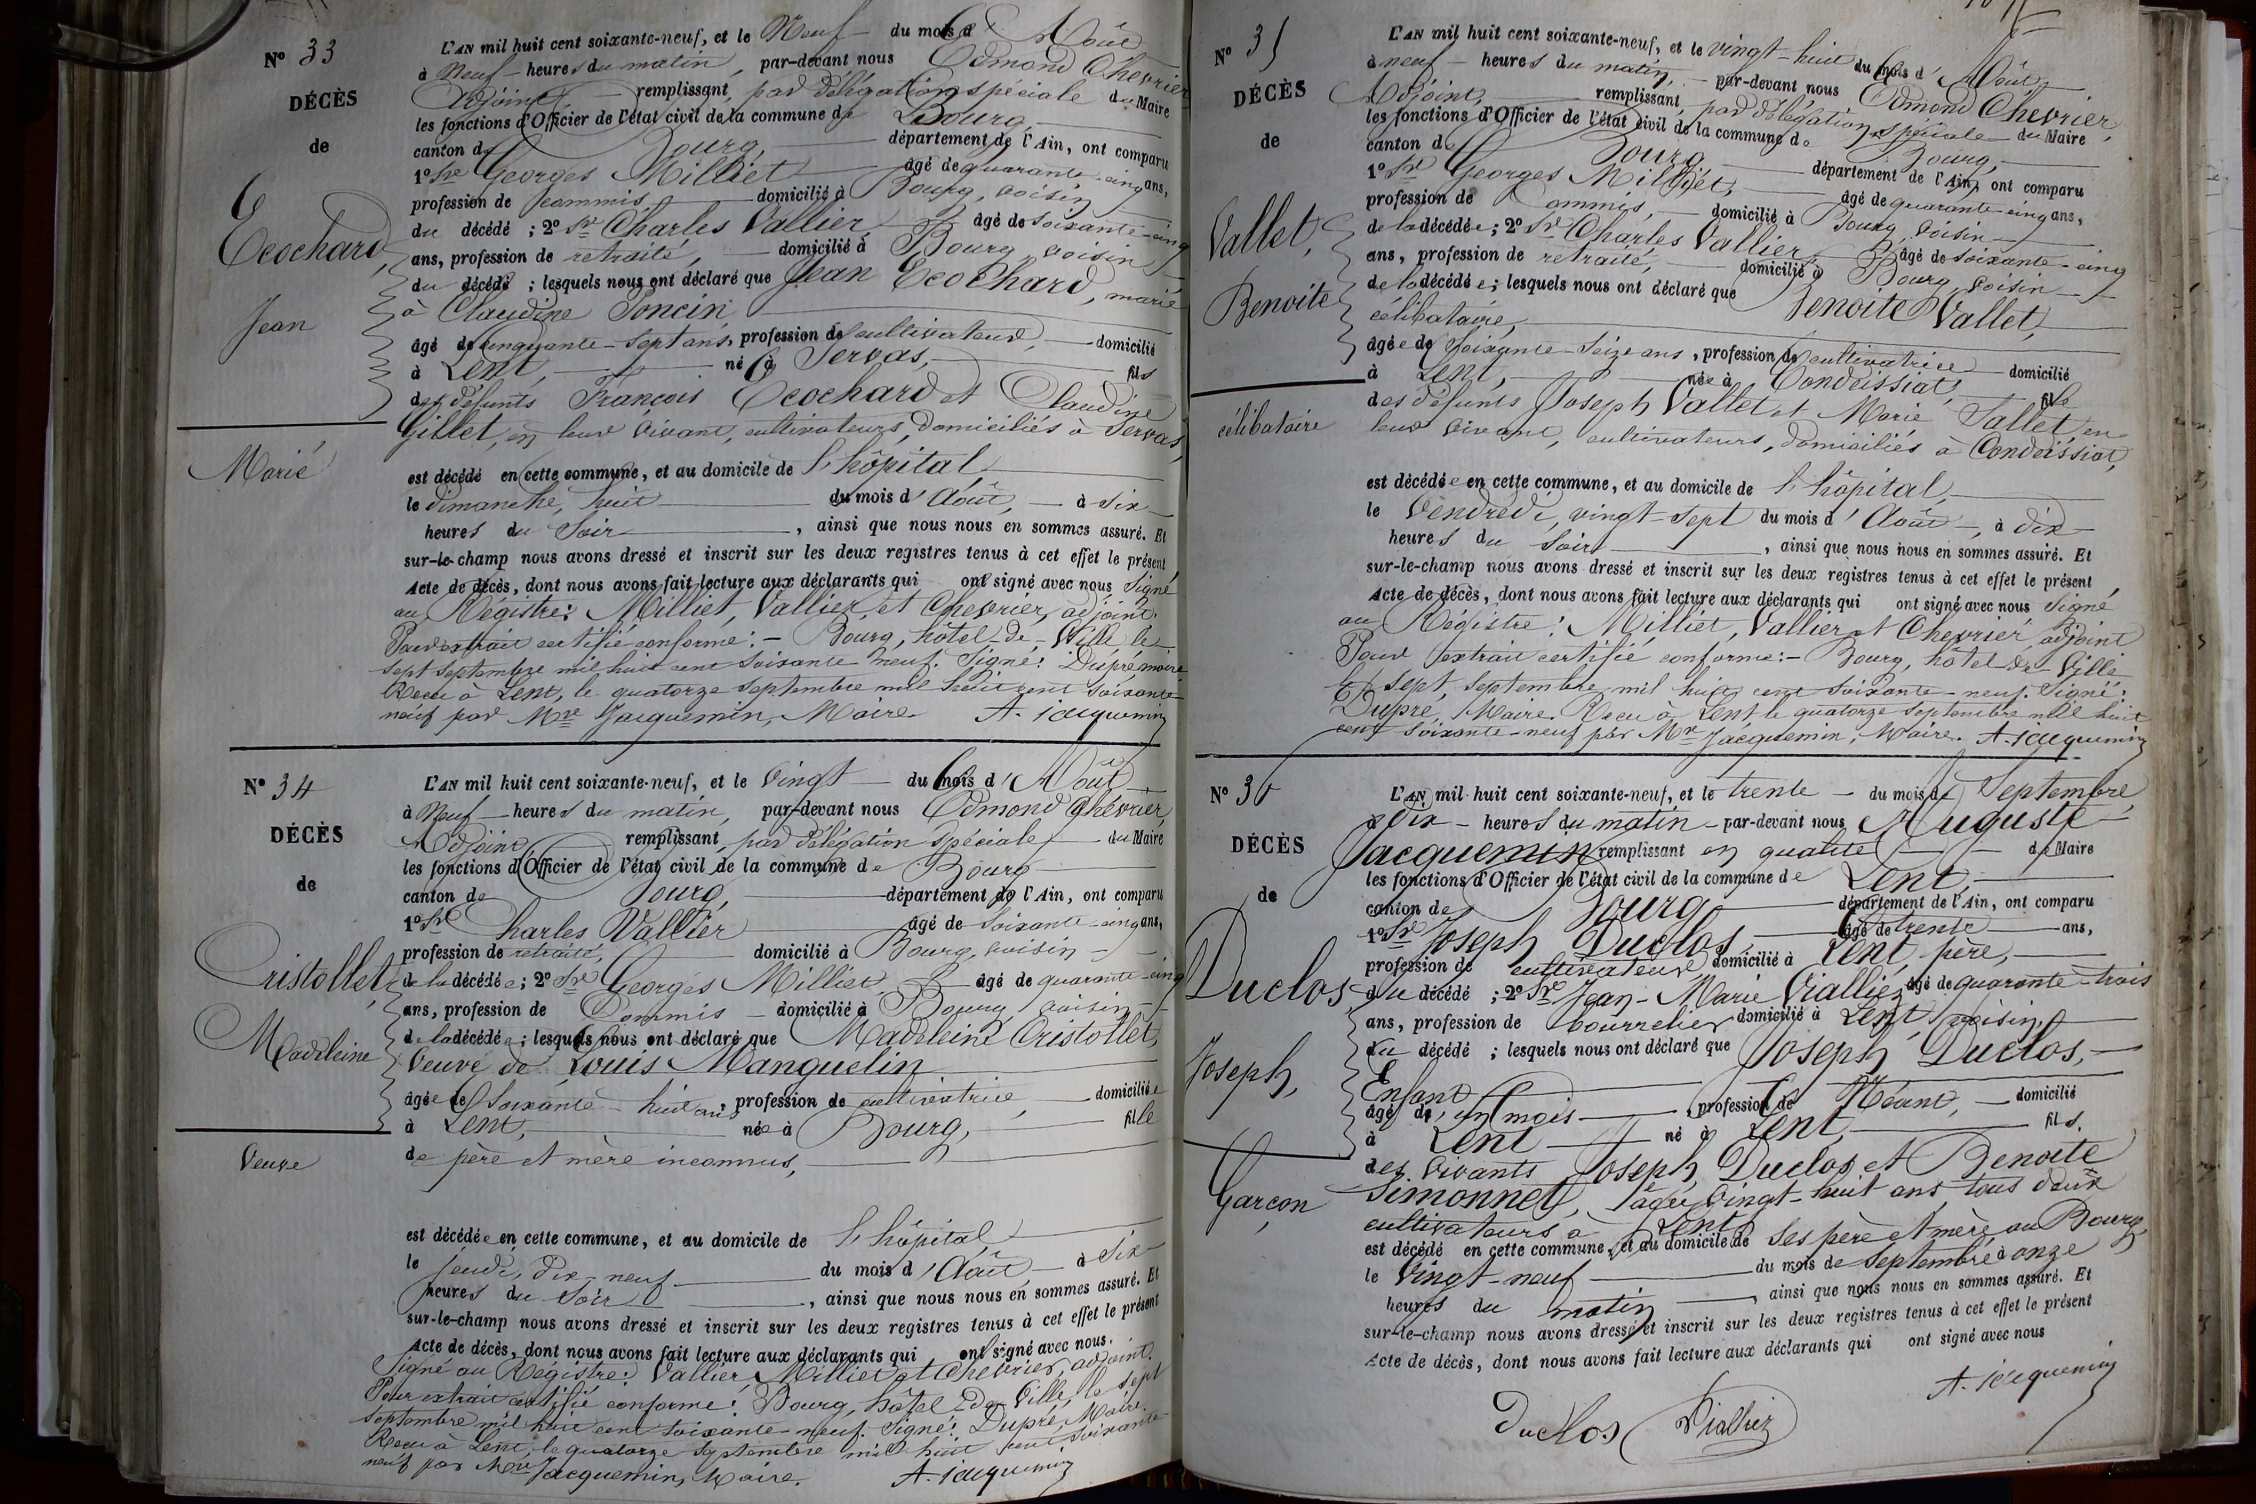 N° 33
DÉCÈS
de
Ecochard,
Jean
Marié
L'AN mil huit cent soixante-neuf, et le Neuf du mois d'Août
à Neuf heures du matin, par-devant nous Edmond Chevrier
Adjoint remplissant, par délégation spéciale du Maire
les fonctions d'Officier de l'état civil de la commune de Bourg,
canton de Bourg, département de l'Ain, ont comparu
1° Sre Georges Milliet âgé de quarante-cinq ans,
profession de commis, domicilié à Bourg, voisin
du décédé ; 2° Sr Charles Vallier, âgé de soixante-cinq
ans, profession de retraité, domicilié à Bourg, voisin
du décédé ; lesquels nous ont déclaré que Jean Ecochard, marié
à Claudine Poncin
âgé de cinquante-sept ans, profession de cultivateur, domicilié
à Lent, né à Servas, fils
des défunts François Ecochard et Claudine
Gillet, en leur vivant, cultivateurs, domiciliés à Servas,
est décédé en cette commune, et au domicile de l'hôpital,
le dimanche, huit du mois d'Août, à six
heures du soir, ainsi que nous nous en sommes assuré. Et
sur-le-champ nous avons dressé et inscrit sur les deux registres tenus à cet effet le présent
Acte de décès, dont nous avons fait lecture aux déclarants qui ont signé avec nous Signé
au Régistre : Milliet, Vallier et Chevrier, adjoint.
Pour extrait certifié conforme : - Bourg, hôtel-de-Ville le
sept septembre mil huit cent soixante neuf. Signé : Dupré maire
Recu à Lent, le quatorze septembre mil huit cent soixante
neuf par Mre Jacquemin, Maire. A. jacquemin
N° 34
DÉCÈS
de
Cristollet,
Madeleine
Veuve
L'AN mil huit cent soixante-neuf, et le vingt du mois d'Août
à Neuf heures du matin, par-devant nous Edmond Chevrier,
Adjoint remplissant, par délégation spéciale du Maire
les fonctions d'Officier de l'état civil de la commune de Bourg
canton de Bourg, département de l'Ain, ont comparu
1° Sre Charles Vallier âgé de soixante-cinq ans,
profession de retraité, domicilié à Bourg, voisin
de la décédée ; 2° Sre Georges Milliet, âgé de quarante-cinq
ans, profession de Commis domicilié à Bourg voisin
de la décédée ; lesquels nous ont déclaré que Madeleine Cristollet,
Veuve de Louis Manguelin
âgée de soixante-huit ans, profession de cultivatrice, domiciliée
à Lent, née à Bourg, fille
de père et mère inconnus,
est décédée en cette commune, et au domicile de l'hôpital
le jeudi, dix-neuf du mois d'Août, à six
heures du soir, ainsi que nous nous en sommes assuré. Et
sur-le-champ nous avons dressé et inscrit sur les deux registres tenus à cet effet le présent
Acte de décès, dont nous avons fait lecture aux déclarants qui ont signé avec nous.
Signé au Régistre : Vallier, Milliet et Chevrier, adjoint.
Pour extrait certifié conforme : Bourg, hôtel-de-Ville, le sept
septembre mil huit cent soixante-neuf. Signé : Dupré, Maire.
Recu à Lent, le quatorze septembre mil huit cent soixante
neuf par Mre Jacquemin, Maire. A. jacquemin
N° 35
DÉCÈS
de
Vallet,
Benoite
célibataire
L'AN mil huit cent soixante-neuf, et le vingt-huit du mois d'Août
à neuf heures du matin, par-devant nous Edmond Chevrier,
Adjoint, remplissant, par délégation spéciale du Maire
les fonctions d'Officier de l'état civil de la commune de Bourg,
canton de Bourg département de l'Ain, ont comparu
1° Sre Georges Milliet, âgé de quarante-cinq ans,
profession de Commis, domicilié à Bourg, voisin
de la décédée ; 2° Sr Charles Vallier, âgé de soixante-cinq
ans, profession de retraité, domicilié à Bourg, voisin
de la décédée ; lesquels nous ont déclaré que Benoite Vallet,
célibataire,
âgée de soixante-seize ans, profession de cultivatrice domicilié
à Lent, née à Condeissiat, fille
des défunts Joseph Vallet et Marie Tallet en
leur vivant, cultivateurs, domiciliés à Condeissiat,
est décédée en cette commune, et au domicile de l'hôpital,
le Vendredi, vingt-sept du mois d'Août, à dix
heures du soir, ainsi que nous nous en sommes assuré. Et
sur-le-champ nous avons dressé et inscrit sur les deux registres tenus à cet effet le présent
Acte de décès, dont nous avons fait lecture aux déclarants qui ont signé avec nous Signé
au Régistre : Milliet, Vallier et Chevrier adjoint
Pour extrait certifié conforme : - Bourg, hôtel-de-Ville
le sept septembre mil huit cent soixante-neuf. Signé :
Dupré, Maire. Recu à Lent le quatorze septembre mil huit
cent soixante-neuf par Mr Jacquemin, Maire. A. jacquemin
N° 36
DÉCÈS
de
Duclos
Joseph,
Garçon
L'AN mil huit cent soixante-neuf, et le trente du mois de Septembre
à Dix heures du matin par-devant nous Auguste
Jacquemin remplissant en qualité de Maire
les fonctions d'Officier de l'état civil de la commune de Lent,
canton de Bourg département de l'Ain, ont comparu
1° Sre Joseph Duclos âgé de trente ans,
profession de cultivateur domicilié à Lent, père,
du décédé ; 2° Sre Jean-Marie Viallier âgé de quarante-trois
ans, profession de bourrelier domicilié à Lent, voisin,
du décédé ; lesquels nous ont déclaré que Joseph Duclos,
Enfant
âgé de un mois, profession de Néant, domicilié
à Lent né à Lent, fils.
des vivants Joseph Duclos et Benoite
Simonnet, âgée vingt-huit ans tous deux
cultivateurs à Lent,
est décédé en cette commune, et au domicile de ses père et mère, au Bourg,
le Vingt-neuf du mois de septembre à onze
heures du matin, ainsi que nous nous en sommes assuré. Et
sur-le-champ nous avons dressé et inscrit sur les deux registres tenus à cet effet le présent
Acte de décès, dont nous avons fait lecture aux déclarants qui ont signé avec nous
A. jacquemin
Duclos Viallier